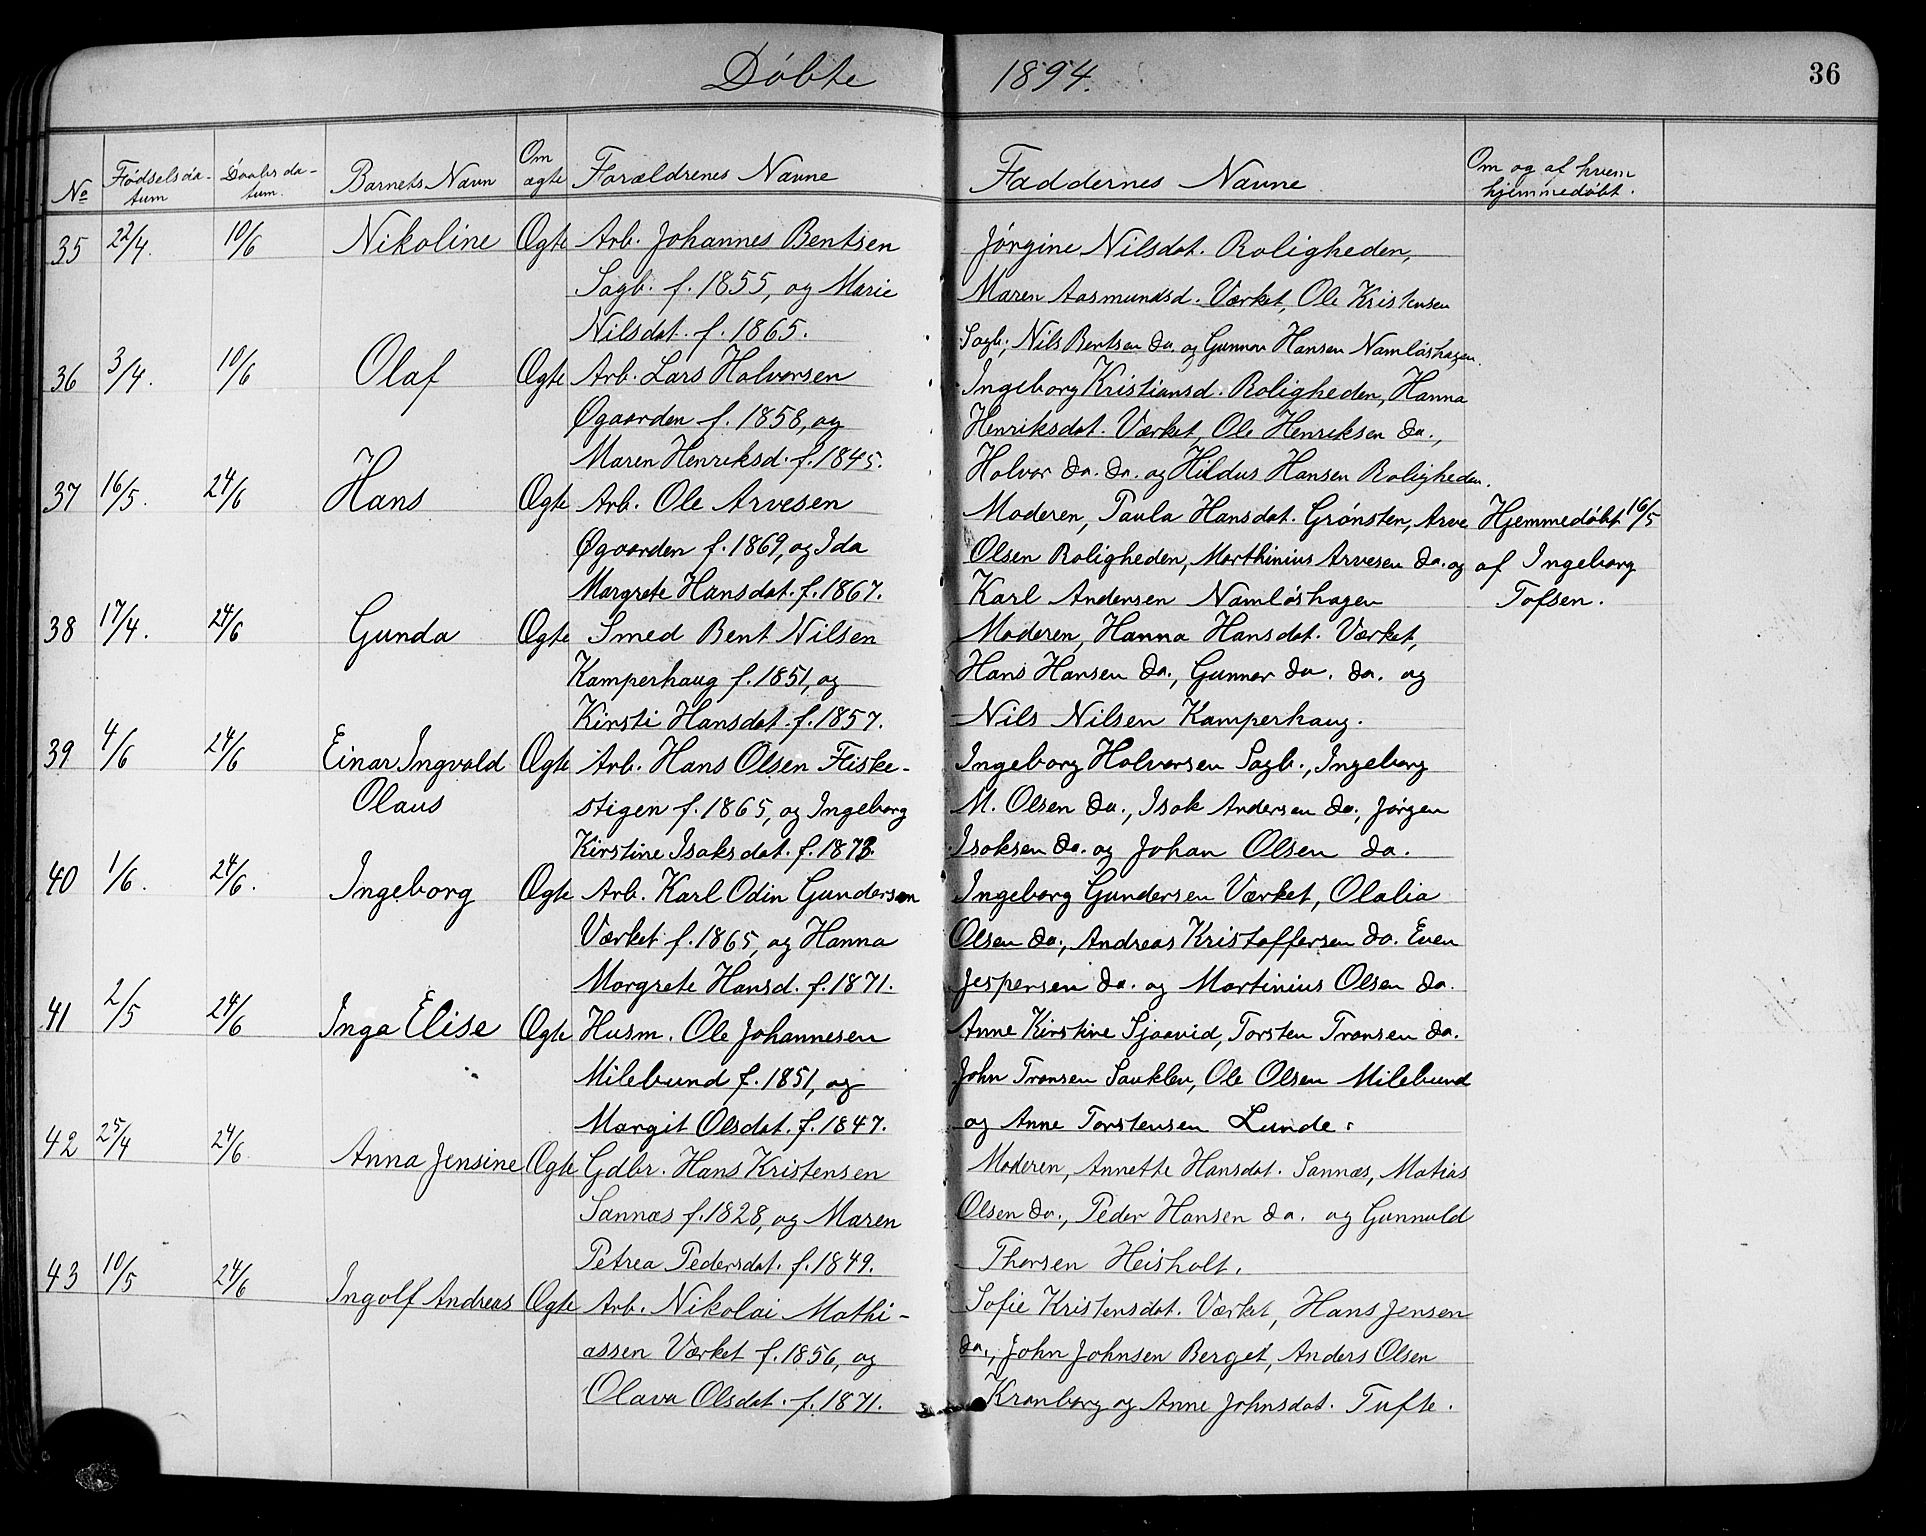 Døbte 1894. 36
No Fødselsdatum Daabsdatum. Barnets Navn Om ægte Forældrenes Navne Faddernes Navne Om og af hvem hjemmedøbt.
35 22/4. 10/6 Nikoline Ægte Arb. Johannes Bentsen Jørgine Nilsdat. Roligheden,
Sagb. f. 1855, og Marie Maren Aasmundsd. Værket, Ole Kristensen
Nilsdat. f. 1865. Sagb., Nils Bentsen do. og Gunnar Hansen Namløshagen.
36 3/4. 10/6 Olaf Ægte Arb. Lars Halvorsen Ingeborg Kristiansd. Roligheden, Hanna
Øgaarden f. 1858, og Henriksdat. Værket, Ole Henriksen do.,
Maren Henriksd. f. 1845. Halvor do. do. og Hildus Hansen Roligheden.
37 16/5. 24/6 Hans Ægte Arb. Ole Arvesen Moderen, Paula Hansdat. Grønsten, Arve Hjemmedøbt 16/5
Øgaarden f. 1869, og Ida Olsen Roligheden, Marthinius Arvesen do. og af Ingeborg
Margrete Hansdat. f. 1867. Karl Andersen Namløshagen Tofsen.
38 17/4. 24/6 Gunda Ægte Smed Bent Nilsen Moderen, Hanna Hansdat. Værket,
Kamperhaug f. 1851, og Hans Hansen do., Gunnar do. do. og
Kirsti Hansdat. f. 1857. Nils Nilsen Kamperhaug.
39 4/6 24/6 Einar Ingvald Ægte Arb. Hans Olsen Fiske- Ingeborg Halvorsen Sagb., Ingeborg
Olaus stigen f. 1865, og Ingeborg M. Olsen do., Isak Andersen do., Jørgen
Kirstine Isaksdat. f. 1873. Isaksen do. og Johan Olsen do.
40 1/6. 24/6. Ingeborg Ægte Arb. Karl Odin Gundersen Ingeborg Gundersen Værket, Olalia
Værket f. 1865, og Hanna Olsen do., Andreas Kristoffersen do. Even
Margrete Hansd. f. 1871. Jespersen do. og Martinius Olsen do.
41 2/5 24/6 Inga Elise Ægte Husm. Ole Johannesen Anne Kirstine Sjaavid, Torsten Tronsen do.
Milebund f. 1851, og John Tronsen Sauklev, Ole Olsen Milebund
Margit Olsdat. f. 1847. og Anne Torstensen Lunde.
42 25/4 24/6 Anna Jensine Ægte Gdbr. Hans Kristensen Moderen, Annette Hansdat. Sannæs, Matias
Sannæs f. 1828, og Maren Olsen do., Peder Hansen do. og Gunnuld
Petrea Pedersdat. f. 1849. Thorsen Heisholt.
43 10/5 24/6 Ingolf Andreas Ægte Arb. Nikolai Mathi- Sofie Kristensdat. Værket, Hans Jensen
assen Værket f. 1856, og do., John Johnsen Berget, Anders Olsen
Olava Olsdat. f. 1871. Kronborg og Anne Johnsdat. Tufte.